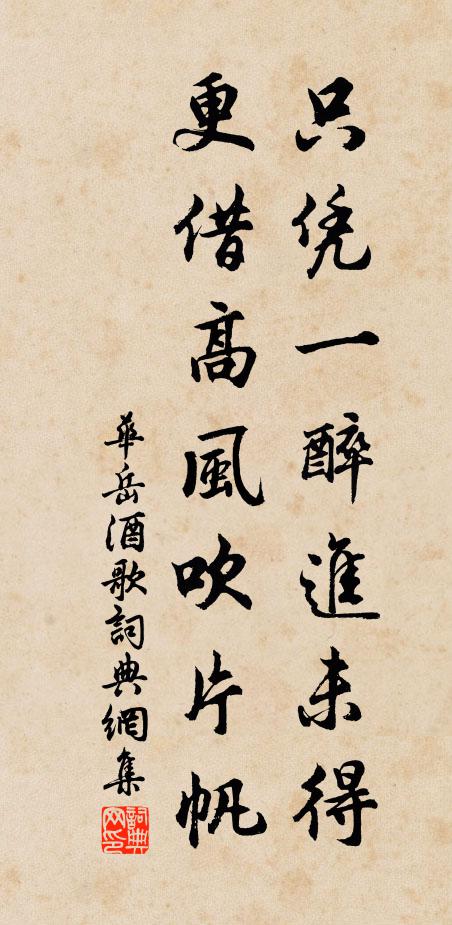 只凭一醉進未得
更借高風吹片帆
華岳酒歌詞典網集
詞典
网印